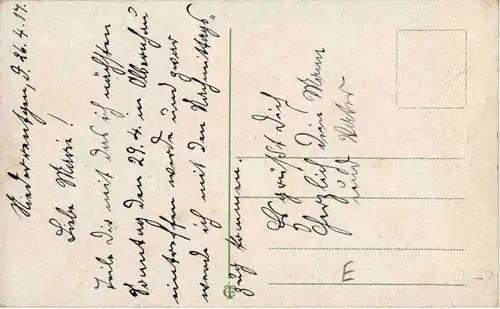 Niederrentgen, d. 26.4.17.
Liebe Marie!
Teile Dir mit das ich nächsten
Sonntag den 29.4. in
eintreffen werde und zwar
werde ich mit den Nachmittags
zug kommen.
Es grüßt Dich
Herzlich dein Mann
und Vater
E